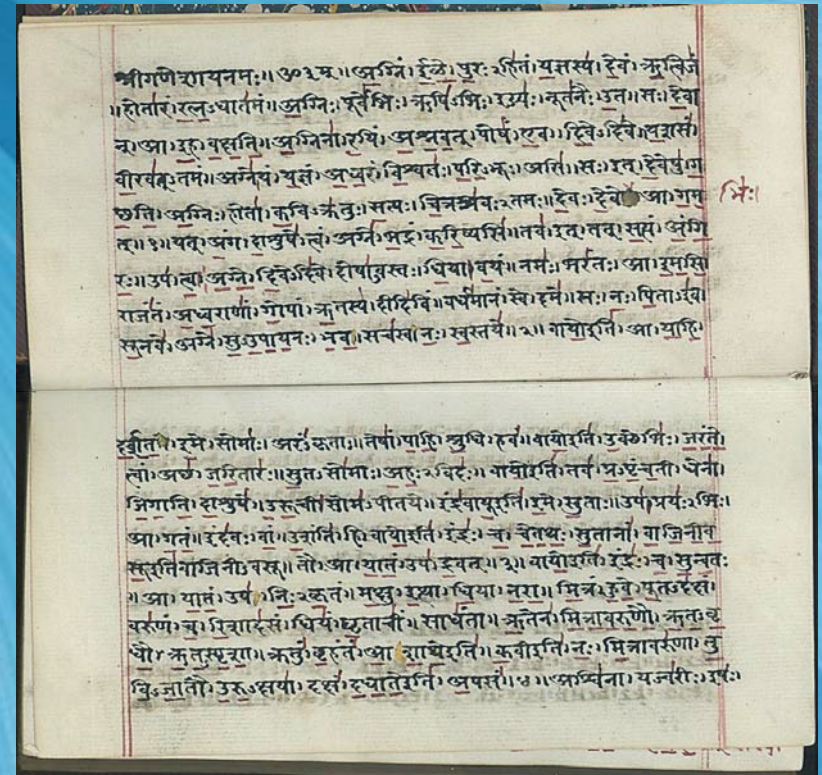 श्रीगणेशायनमः॥ॐ३म्॥अग्निं।ईळे।पुरःऽहितं।यज्ञस्य।देवं।ऋत्विजं
॥होतारं।रत्नऽधातमं॥अग्निः।पूर्वेभिः।ऋषिऽभिः।ईड्यः।नूतनैः।उत॥सः।देवा
न्।आ।इह।वक्षति॥अग्निना।रयिं।अश्नवत्।पोषं।एव।दिवेऽदिवे॥यशसं
वीरवत्ऽतमं॥अग्ने।यं।यज्ञं।अध्वरं।विश्वतः।परिऽभूः।असि॥सः।इत्।देवेषु।ग
च्छति।अग्निः।होता।कविऽक्रतुः।सत्यः।चित्रश्रवःऽतमः॥देवः।देवे आ।गम
भिः।
त्॥१॥यत्।अंग।दाशुषे।त्वं।अग्ने।भद्रं।करिष्यसि॥तव।इत्।तत्।सत्यं।अंगि
रः॥उप।त्वा।अग्ने।दिवेऽदिवे।दोषाऽवस्तः।धिया।वयं॥नमः।भरंतः।आ।इमसि॥
राजंतं।अध्वराणां।गोपां।ऋतस्य।दीदिविं॥वर्धमानं।स्वे।दमे॥सः।नः।पिताऽइव।
सूनवे।अग्ने।सुऽउपायनः।भव॥सचस्व।नः।स्वस्तये॥२॥वायोइति।आ।याहि।
दर्शत।इमे।सोमाः।अरंऽकृताः॥तेषां।पाहि।श्रुधि।हवं॥वायोइति।उक्थेभिः।जरंते।
त्वां।अच्छ।जरितारः॥सुतऽसोमाः।अहःऽविदः॥वायोइति।तव।प्रऽपृंचती।धेना।
जिगाति।दाशुषे॥उरूची।सोमऽपीतये॥इंद्रवायूइति।इमे।सुताः॥उप।प्रयःऽभिः।
आ।गतं॥इंदवः।वां।उशंति।हि॥वायोइति।इंद्रः।च।चेतथः।सुतानां।वाजिनीव
सूइतिवाजिनीऽवसू॥तौ।आ।यातं।उप।द्रवत्॥३॥वायोइति।इंद्रः।च।सुन्वतः
॥आ।यातं।उप।निःऽकृतं॥मक्षु।इत्था।धिया।नरा॥मित्रं।हुवे।पूतऽदक्षं।
वरुणं।च।रिशादसं॥धियं।घृताचीं।साधंता॥ऋतेन।मित्रावरुणौ।ऋतऽवृ
धौ।ऋतऽस्पृशा॥क्रतुं।बृहंतं।आशाथेइति॥कवीइति।नः।मित्रावरुणा।तु
विऽजातौ।उरुऽक्षया॥दक्षं।दधातेइति।अपसं॥४॥अश्विना।यज्वरीः।इषः।